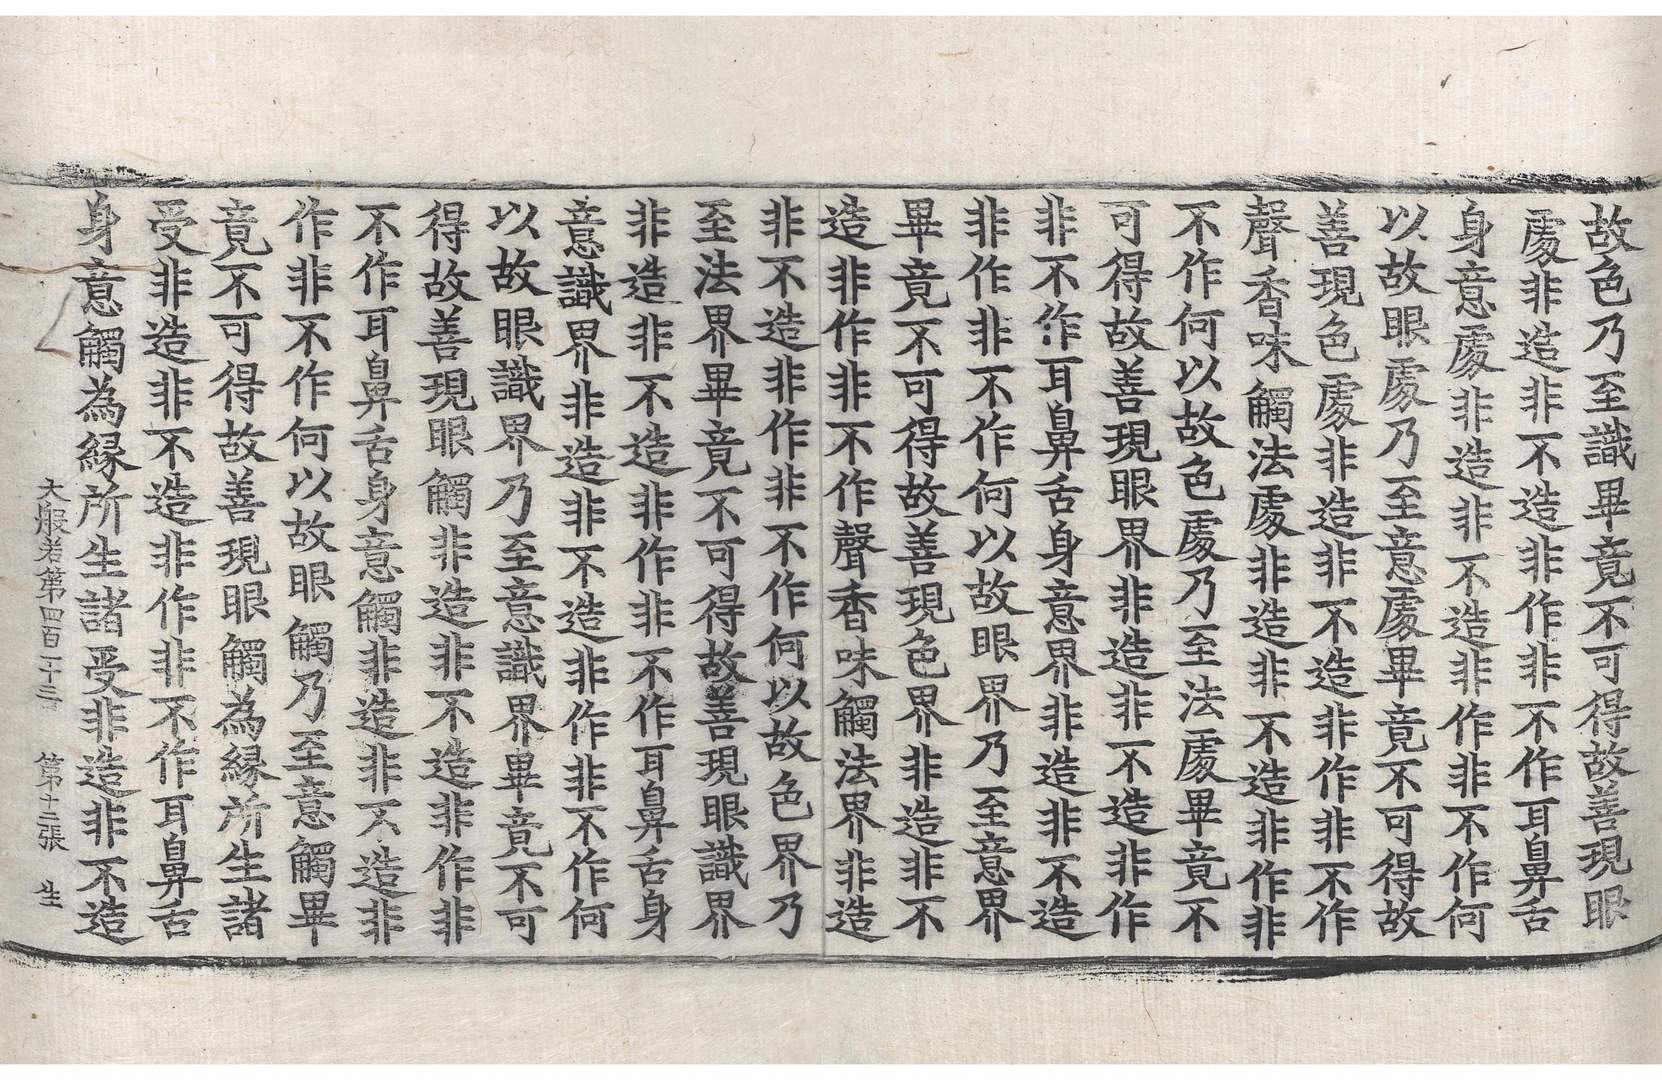 故色乃至識畢竟不可得故善現眼
處非造非不造非作非不作耳鼻舌
身意處非造非不造非作非不作何
以故眼處乃至意處畢竟不可得故
善現色處非造非不造非作非不作
聲香味觸法處非造非不造非作非
不作何以故色處乃至法處畢竟不
可得故善現眼界非造非不造非作
非不作耳鼻舌身意界非造非不造
非作非不作何以故眼界乃至意界
畢竟不可得故善現色界非造非不
造非作非不作聲香味觸法界非造
非不造非作非不作何以故色界乃
至法界畢竟不可得故善現眼識界
非造非不造非作非不作耳鼻舌身
意識界非造非不造非作非不作何
以故眼識界乃至意識界畢竟不可
得故善現眼觸非造非不造非作非
不作耳鼻舌身意觸非造非不造非
作非不作何以故眼觸乃至意觸畢
竟不可得故善現眼觸為緣所生諸
受非造非不造非作非不作耳鼻舌
身意觸為緣所生諸受非造非不造
大般若第四百二十三 第十二張 生